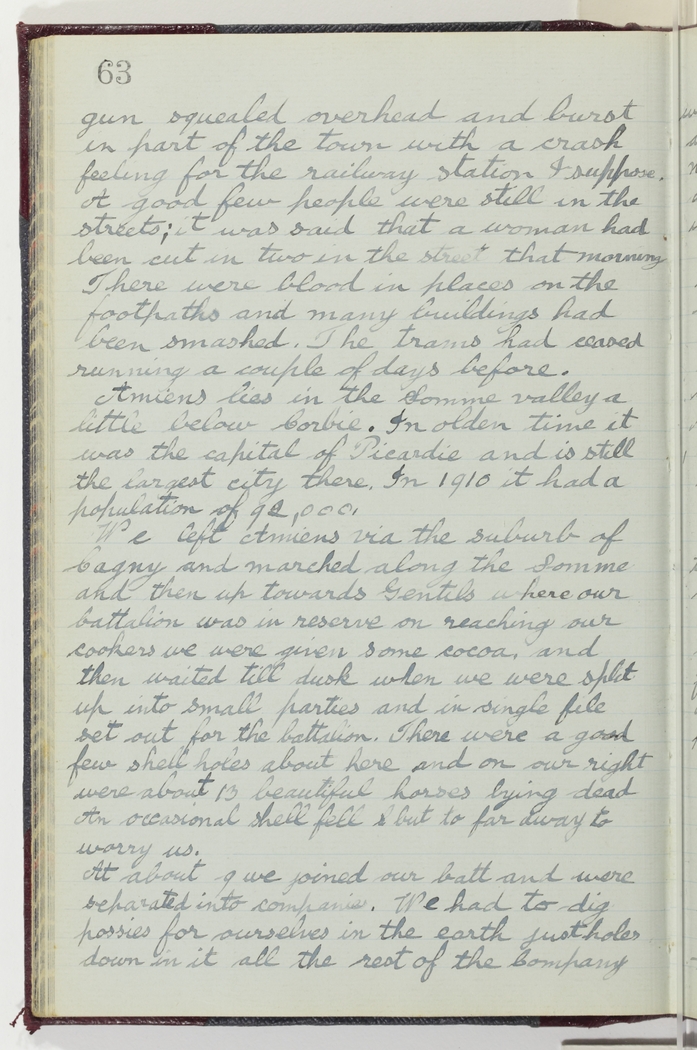 63
gun squealed overhead and burst
in part of the town with a crash
feeling for the railway station I suppose.
A good few people were still in the
streets; it was said that a woman had
been cut in two in the street that morning
There were blood in places on the
footpaths and many buildings had
been smashed. The trams had ceased
running a couple of days before.
Amiens lies in the Somme valley a
little below Corbie. In olden time it
was the capital of Picardie and is still
the largest city there. In 1910 it had a
population of 92,000.
We left Amiens via the suburb of
Cagny and marched along the Somme
and then up towards Gentils where our
battalion was in reserve on reaching our
cookers we were given some cocoa, and
then waited till dusk when we were split
up into small parties and in single file
set out for the battalion. There were a good
few shell holes about here and on our right
were about 13 beautiful horses lying dead
An occasional shell fell but to far away to
worry us.
At about 9 we joined our batt and were
separated into companies. We had to dig
possies for ourselves in the earth just holes
down in it all the rest of the Company